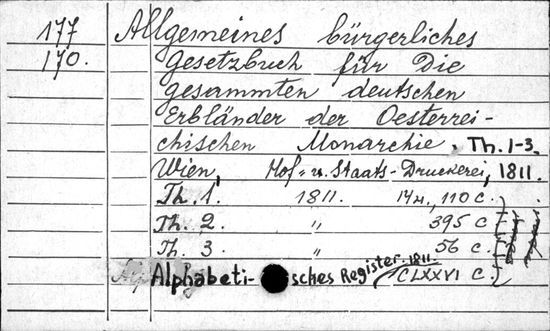 177 Allgemeines bürgerliches
170. Gesetzbuch für die
gesammten deutschen
Erbländer der Oesterrei-
chischen Monarchie. Th. 1-3.
Wien, Hof- u. Staats-Druckerei, 1811.
Th. 1. 1811. 14 н., 110 с.
Th. 2. " 395 с.
Th. 3. " 56 с.
Alphabeti-sches Register. 1811. CLXXVI с.